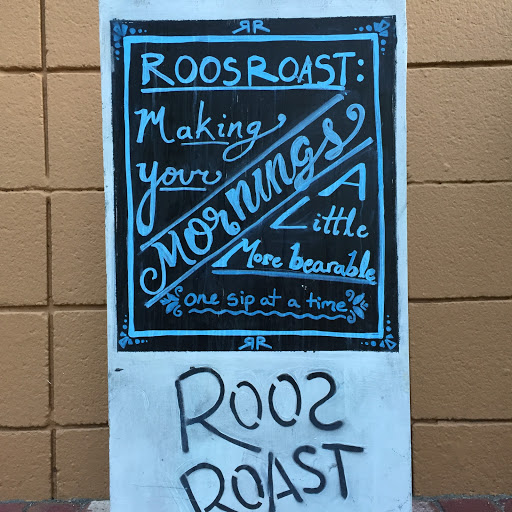 RR
ROOSROAST:
Making
your
Mornings
A
Little
More bearable
one sip at a time
RR
ROOS
ROAST